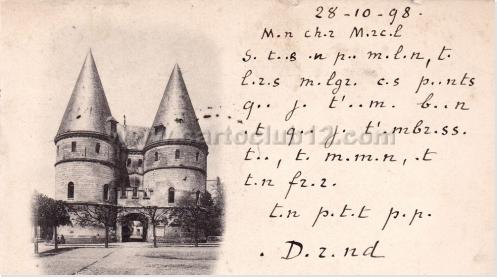 28-10-98.
M.n ch.r M.rc.l
S. t..s .n p.. m.l.n, t.
l.r.s m.lgr. c.s p..nts
q.. j. t'..m. b..n
.t q.. j. t'.mbr.ss.
t.., t. m.m.n, .t
t.n fr.r.
t.n p.t.t p.p.
. D.r.nd
www.cartoclub12.com